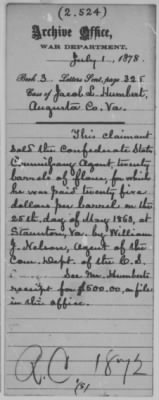 (2.524)
Archive Office,
WAR DEPARTMENT.
July 1, 1878.
Book 3. Letters Sent, page 325
Case of Jacob L. Humbert,
Augusta Co. Va.
This claimant
sold the Confederate State
Commissary Agent, twenty
barrels of flour, for which
he was paid twenty five
dollars per barrel on the
25th. day of May 1863, at
Staunton, Va. by William
J. Nelson, Agent of the
Com. Dept. of the C. S.
See Mr. Humberts
receipt for $500.00, on file
in this office.
R. C. 1872